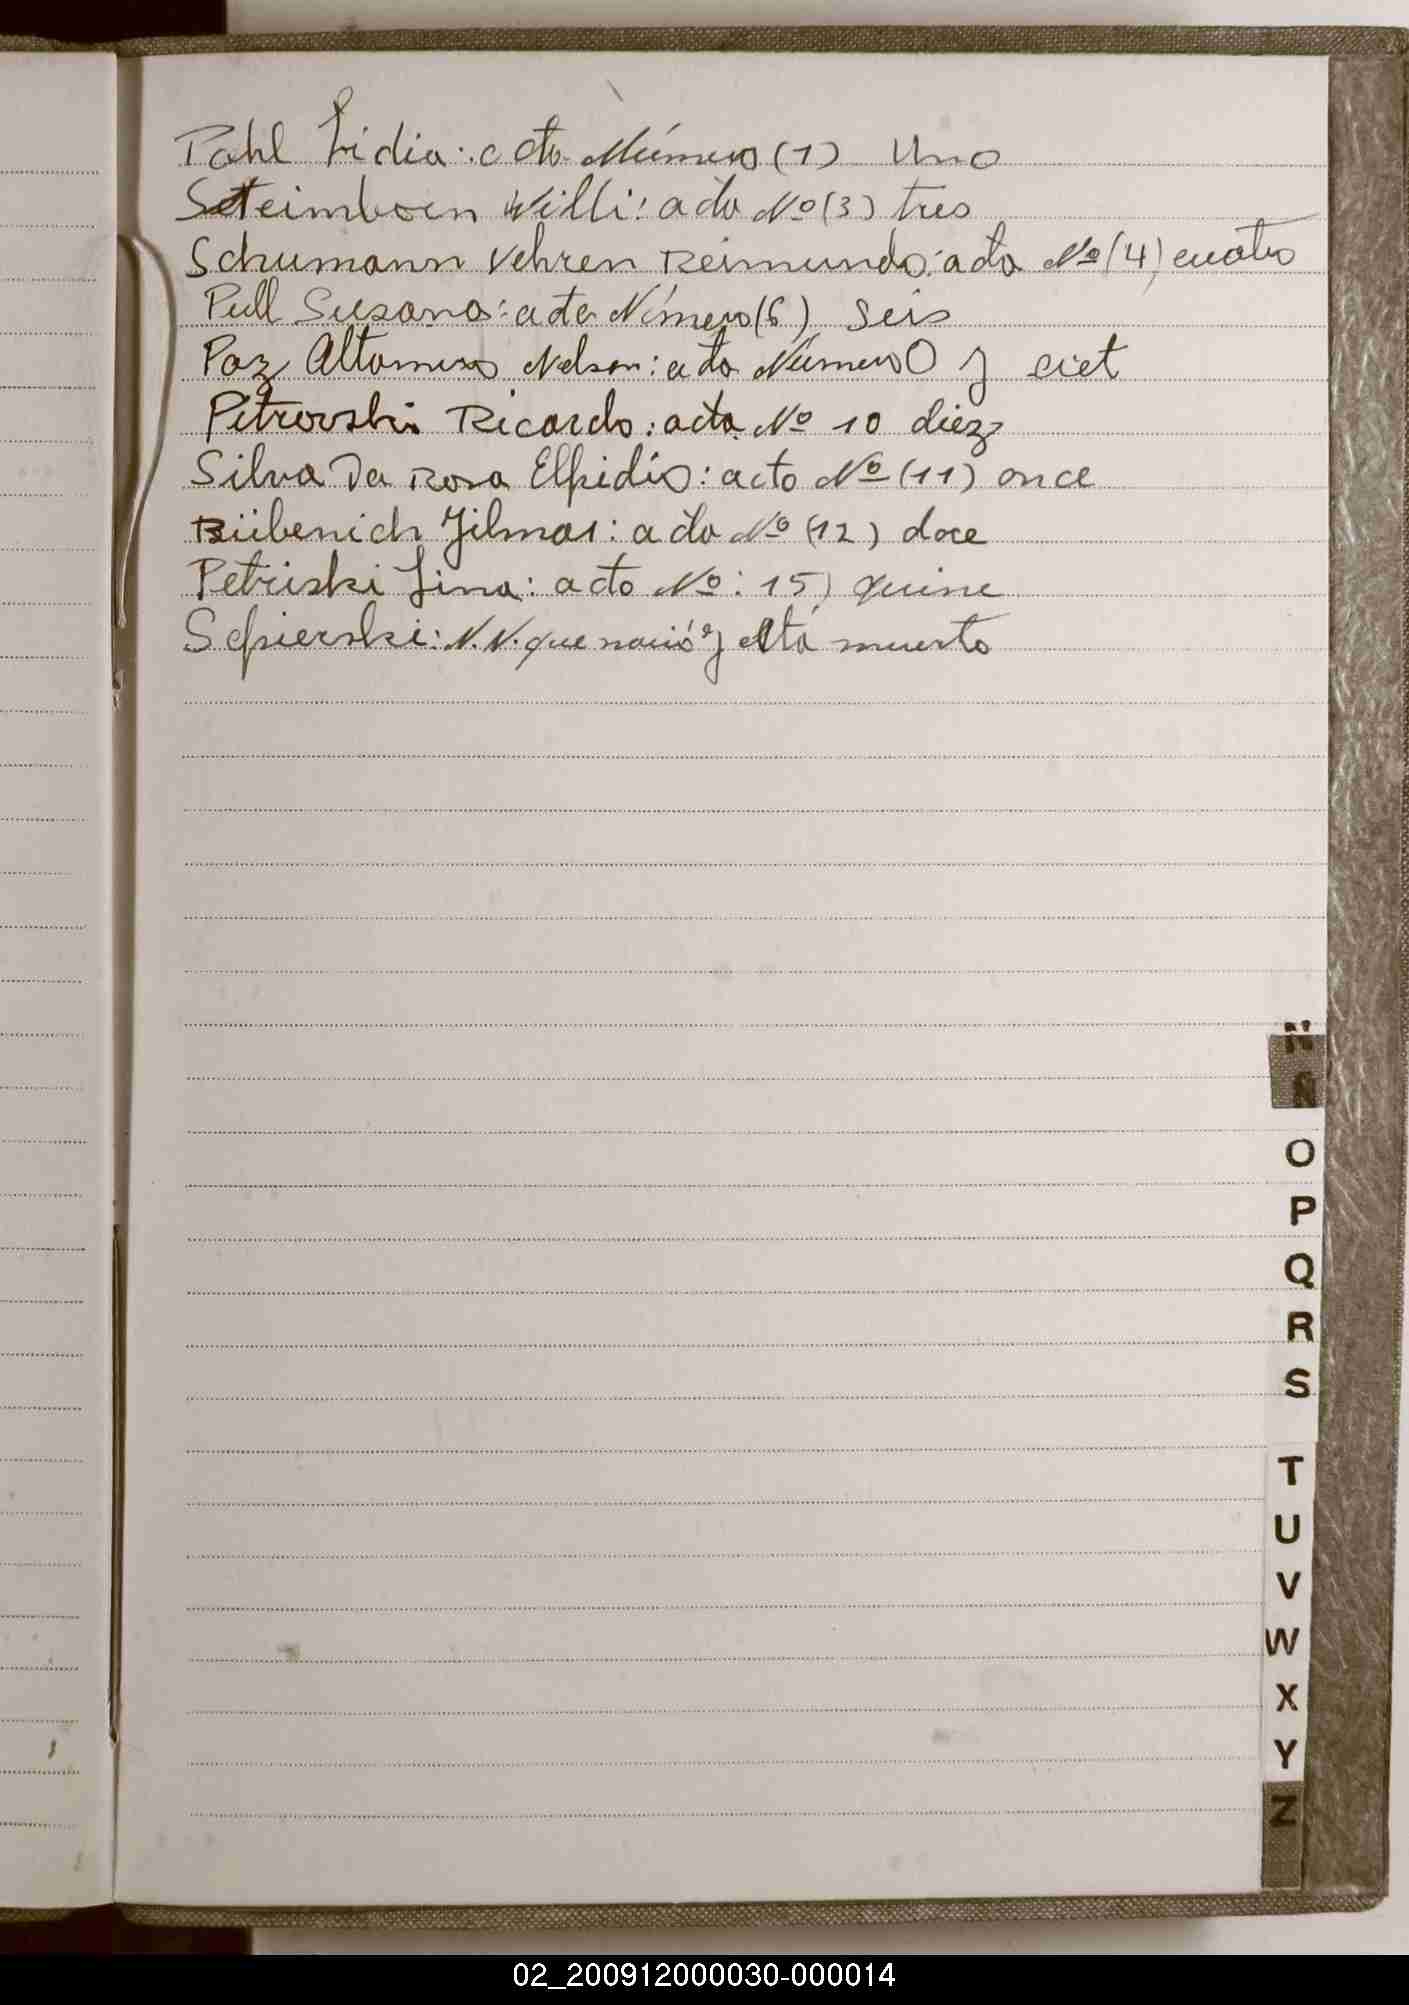 Pahl Lidia: acta Número (1) Uno
Steimboen Willi: acta Nº (3) tres
Schumann Vehren Reimundo: acta Nº (4) cuatro
Pull Susana: acta Número (6) Seis
Paz Altamira Nelson: acta Número 7 ciet
Petrovski Ricardo: acta Nº 10 diez
Silva Da Rosa Elpidio: acta Nº (11) once
Rübenich Jilmar: acta Nº (12) doce
Petriski Lina: acta Nº: 15) quine
Scpierski: N.N. que nació y está muerto
N
Ñ
O
P
Q
R
S
T
U
V
W
X
Y
Z
02_200912000030-000014